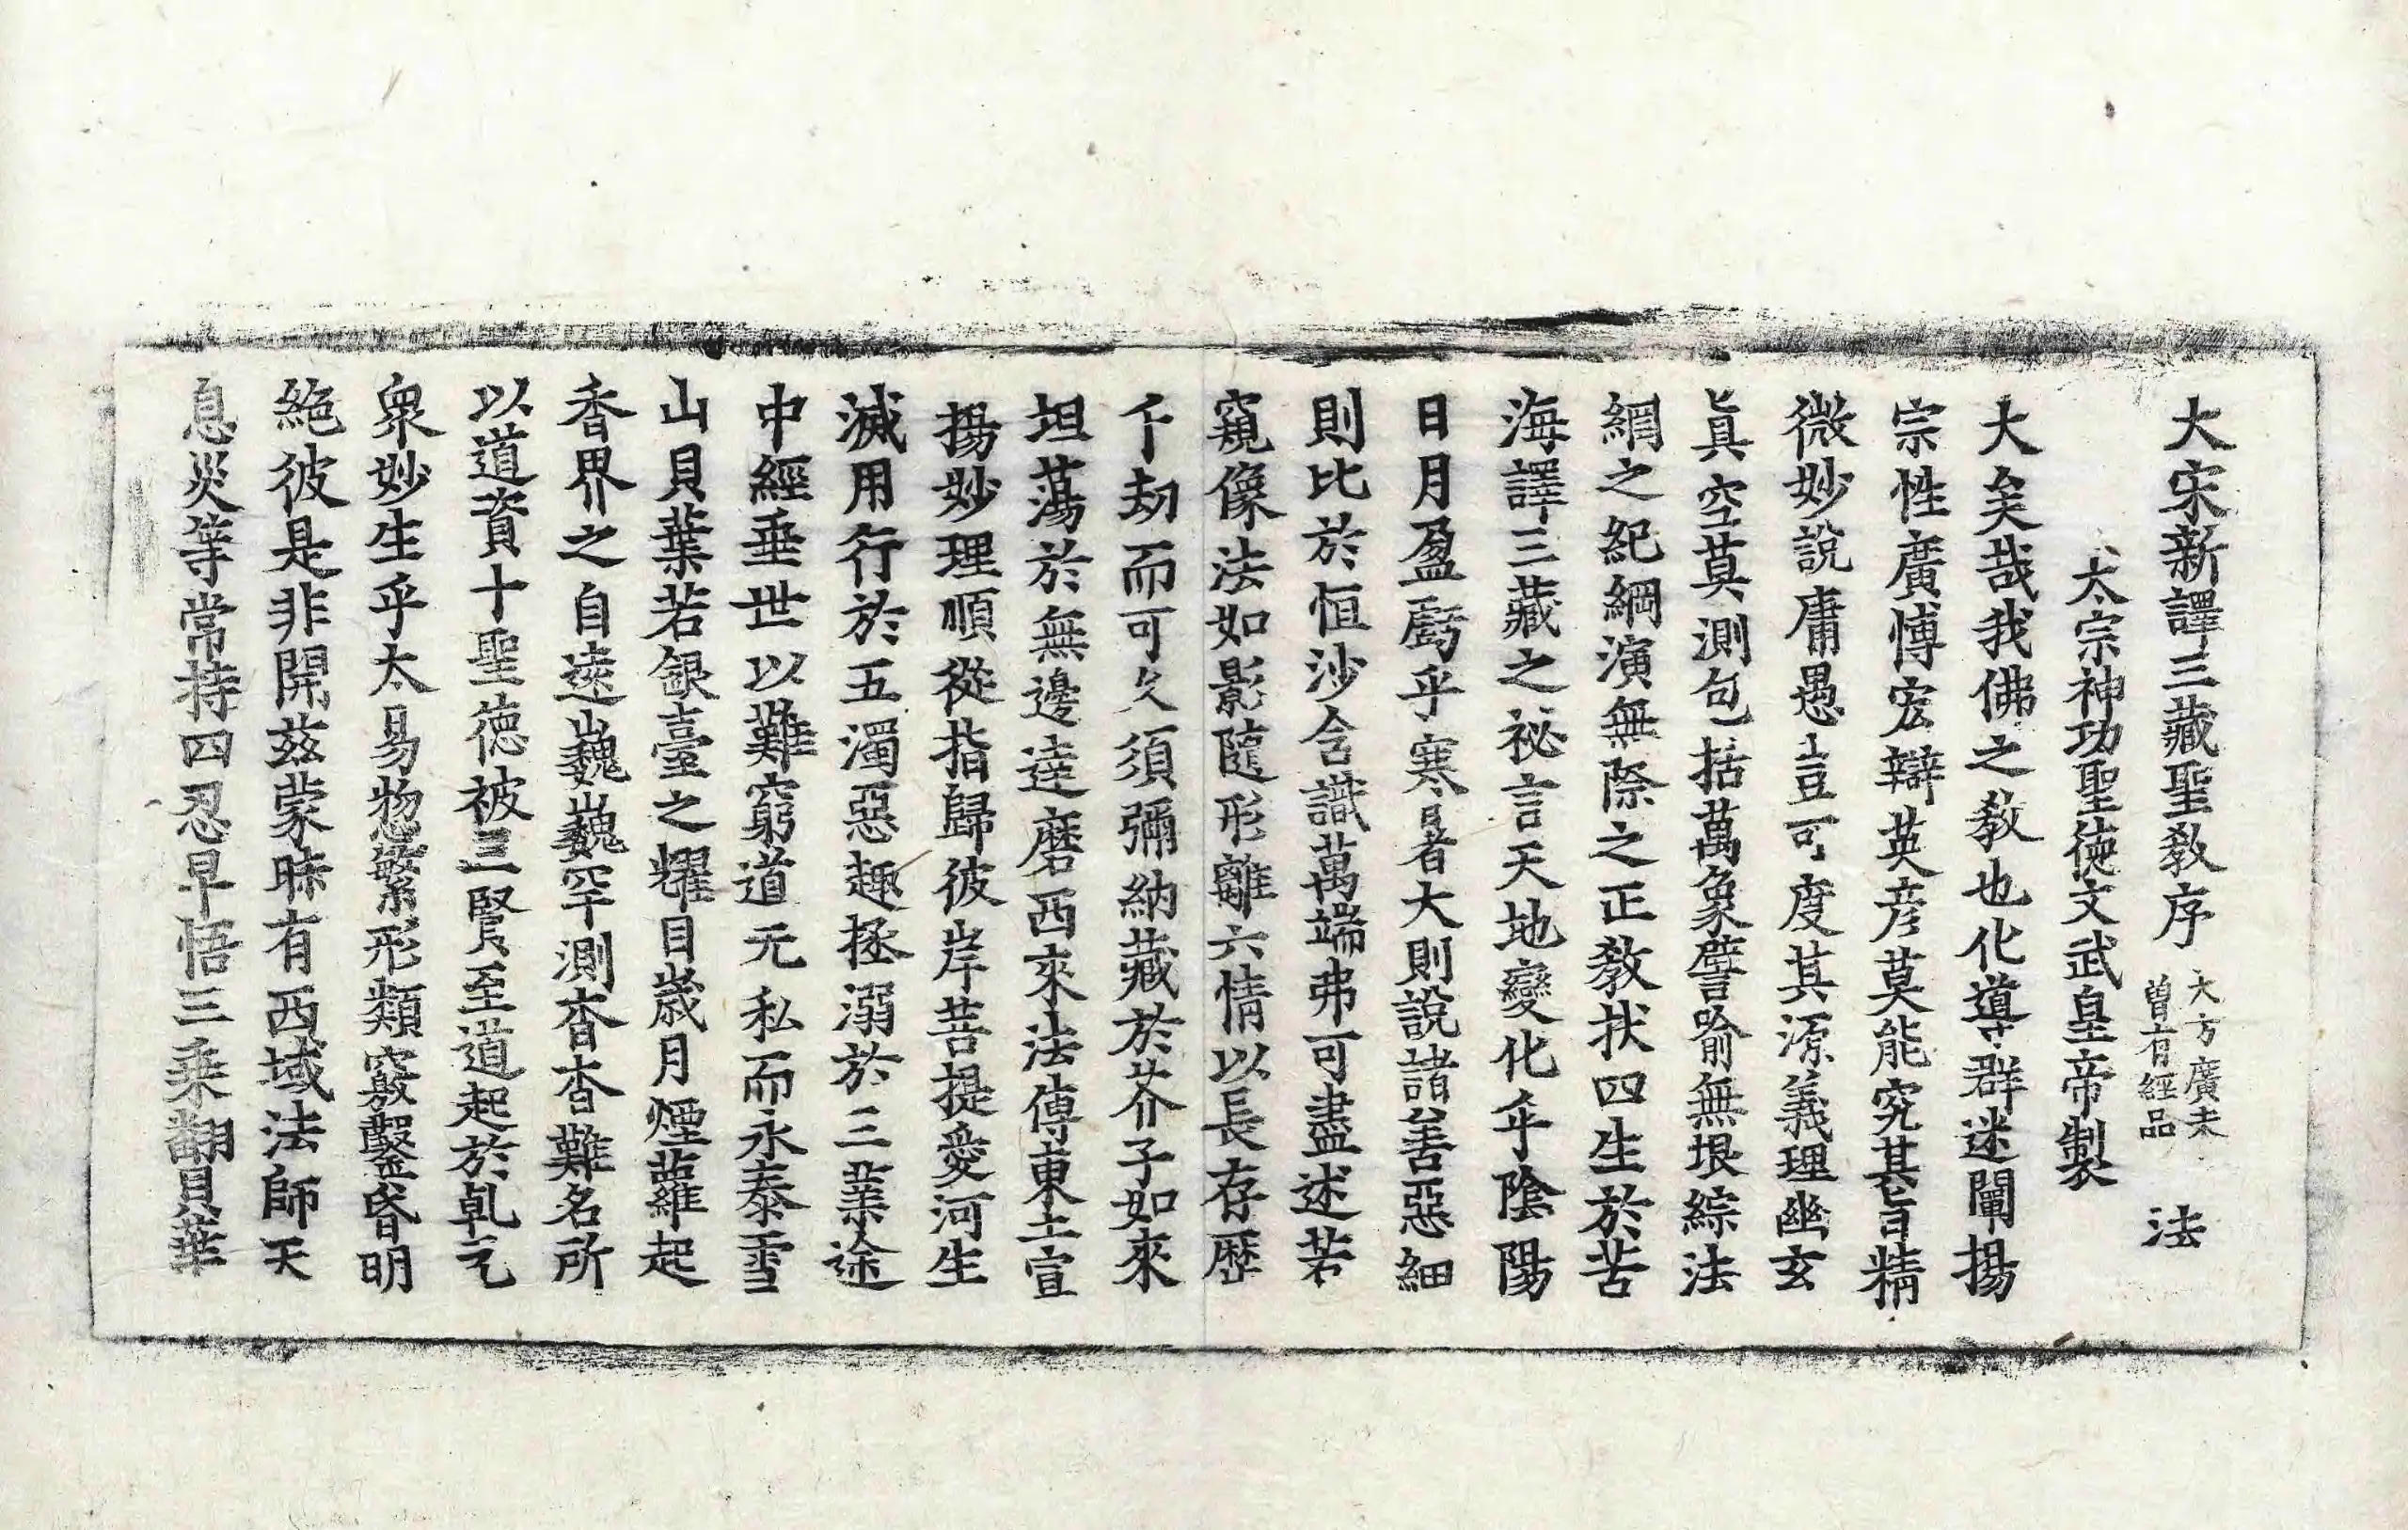 大宋新譯三藏聖敎序 大方廣未曾有經品 法
太宗神功聖德文武皇帝製
大矣哉我佛之敎也化導群迷闡揚
宗性廣博宏辯英彦莫能究其旨精
微妙說庸愚豈可度其源義理幽玄
眞空莫測包括萬象譬喻無垠綜法
網之紀綱演無際之正敎拔四生於苦
海譯三藏之祕言天地變化乎陰陽
日月盈虧乎寒暑大則說諸善惡細
則比於恒沙含識萬端弗可盡述若
窺像法如影隨形離六情以長存歷
千劫而可久須彌納藏於芥子如來
坦蕩於無邊達磨西來法傳東土宣
揚妙理順從指歸彼岸菩提愛河生
滅用行於五濁惡趣拯溺於三業途
中經垂世以難窮道无私而永泰雪
山貝葉若銀臺之耀目歲月煙蘿起
香界之自遠巍巍罕測杳杳難名所
以道資十聖德被三賢至道起於乹元
衆妙生乎太易惣繁形類竅鑿昏明
絶彼是非開兹蒙昧有西域法師天
息災等常持四忍早悟三乘翻貝葉